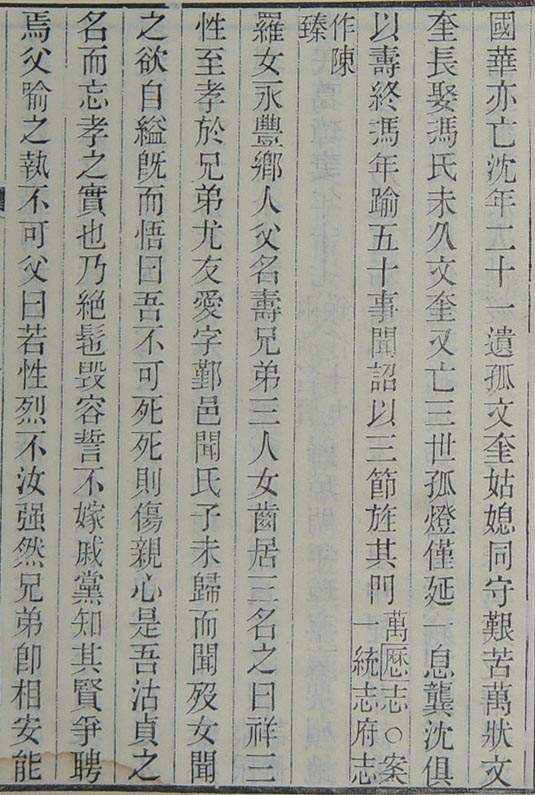 國華亦亡沈年二十一遺孤文奎姑媳同守艱苦萬狀文
奎長娶馮氏未久文奎又亡三世孤燈僅延一息龔沈俱
以壽終馮年踰五十事聞詔以三節旌其門萬歷志○案一統志府志
作陳臻
羅女永豐鄉人父名壽兄弟三人女齒居三名之曰祥三
性至孝於兄弟尤友愛字鄞邑聞氏子未歸而聞歿女聞
之欲自縊旣而悟曰吾不可死死則傷親心是吾沽貞之
名而忘孝之實也乃絶髢毀容誓不嫁戚黨知其賢爭聘
焉父喻之執不可父曰若性烈不汝强然兄弟卽相安能